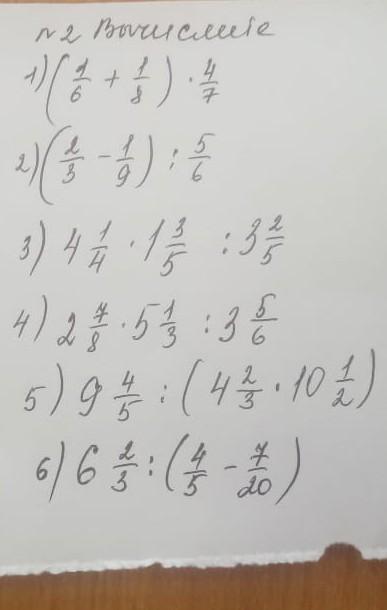 №2 Вычислите
1) (1/6 + 1/8) · 4/7
2) (2/3 - 1/9) : 5/6
3) 4 1/4 · 1 3/5 : 3 2/5
4) 2 7/8 · 5 1/3 : 3 5/6
5) 9 4/5 : (4 2/3 · 10 1/2)
6) 6 2/3 : (4/5 - 7/20)